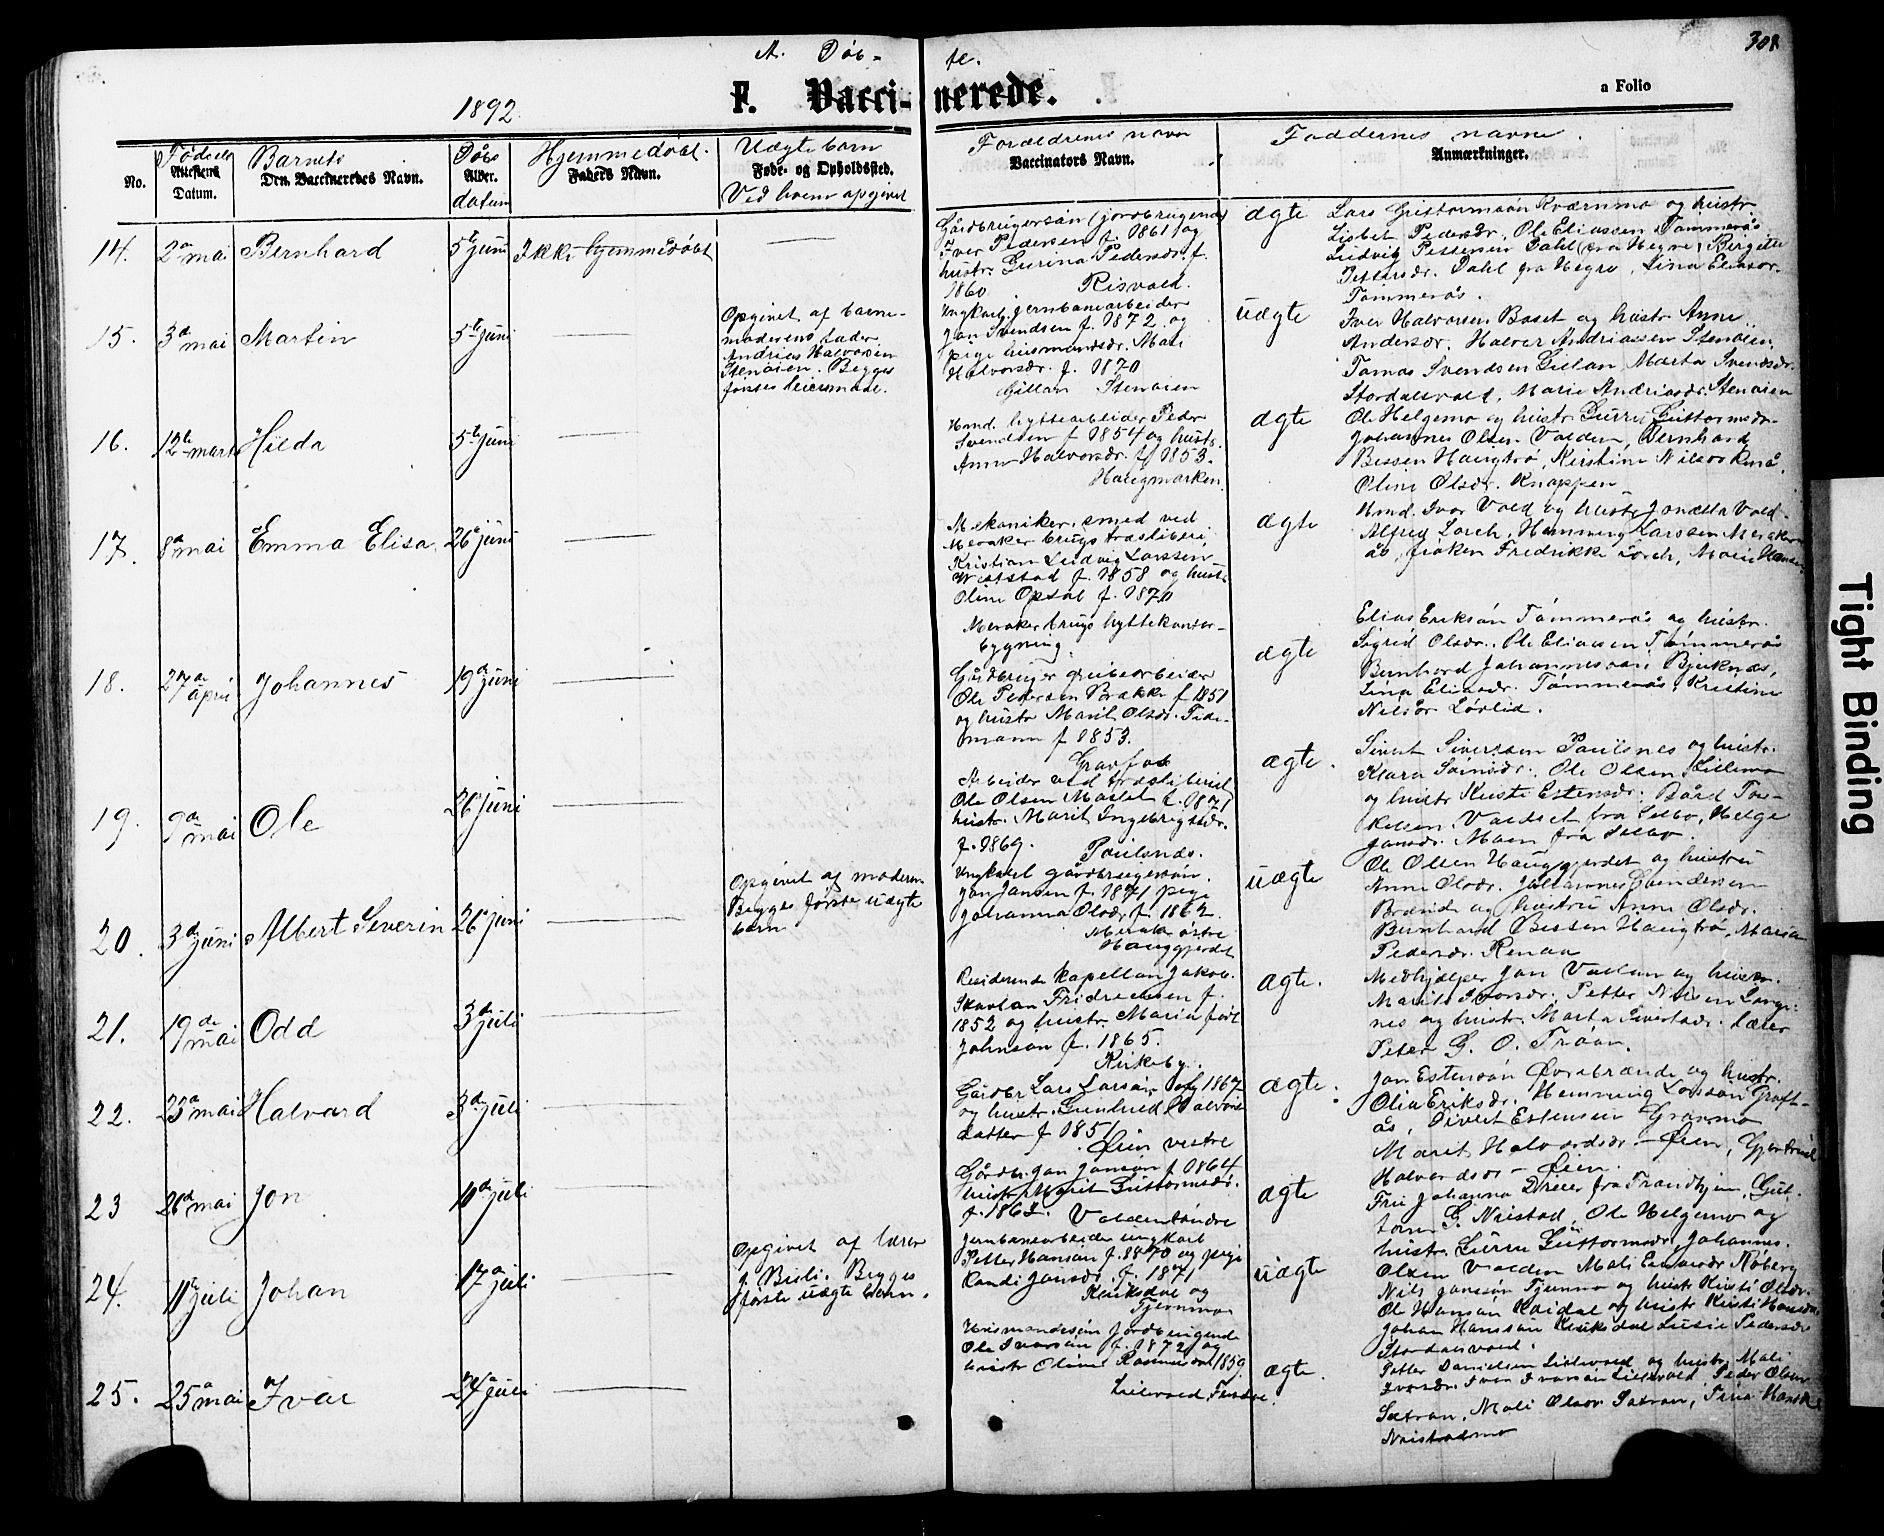 A. Døb- te.
308
F. Vacci- nerede.
a Folio
1892.
No.
Fødsels
Attestens
Datum.
Barnets
Den Vaccineredes Navn.
Dåbs
Alder.
datum
Hjemmedøbt.
Faders Navn.
Uægte barn
Føde- og Opholdssted.
Ved hvem opgivet
Forældrenes navn
Vaccinators Navn.
Faddernes navne.
Anmærkninger.
14. 2a mai Bernhard 5te juni Ikke hjemmedøbt
Gårdbrugersøn (jordbrugende)
Iver Pedersen f. 1861 og
hustr. Gurina Pedersdr. f.
1860 Risvold.
ægte
Lars Guttormsøn Kværnmo og hustr
Lisbet Pedersdr., Ole Eliassen Tømmerås
Ludvig Pettersen Dahl (fra Hegre) Bergitte
Pettersdr. Dahl fra Hegre, Lina Eliasdr.
Tømmerås.
15. 3d mai Martin 5te juni
Opgivet af barne-
moderens fader
Andrias Halvorsen
Stenøien. Begges
første leiermaal.
Ungkarl, jernbanearbeider
Jon Svendsen f. 1872 og
pige husmandsdr. Mali
Halvorsdr. f. 1870
Gillan Stenøien
uægte
Iver Halvorsen Baset og hustr Anne
Andersdr. Halvor Andriassen Stenøien,
Tomas Svendsen Gillan, Marta Svendsdr.
Stordalsvold, Marie Andriasdr. Stenøien
16. 12te mars Hilda 5te juni
Hmd. hyttearbeider Peder
Svendsen f 1854 og hustr.
Anne Halvorsdr. f 1853.
Haugmarken
ægte
Ole Helgemo og hustr Gurru Guttormsdr.
Johannes Olsen Valden, Bernhard
Bessen Haugtrø, Kirstine Nilsdr Renå,
Oline Olsdr. Knoppen
17. 8a mai Emma Elisa 26a juni
Mekaniker, smed ved
Meraker brugs træsliberi
Kristian Ludvig Larssen
Wiststad f. 1858 og hustr
Oline Opdal f. 1870
Meraker brugs hyttekontor-
bygning.
ægte
Hmd. Ivar Vold og hustr Jonetta Vold.
Alfred Lorch, Hemming Larssen Meraker
ås, frøken Fredrikke Lorch, Marie Hansen
18. 27a april Johannes 19de juni
Gårdbruger grubearbeider
Ole Petersen Brække f 1851
og hustr Marit Olsdr. Tide-
mann f 1853.
Gravfos
ægte
Elias Eriksøn Tømmerås og hustr.
Sigrid Olsdr., Ole Eliassen Tømmerås
Bernhard Johannessøn, Bjerknes,
Lina Eliasdr. Tømmerås, Kristine
Nilsdr Lørlid.
19. 9a mai Ole 26a juni
Arbeider ved træsliberiet
Ole Olsen Moslet f. 1871
hustr. Marit Ingebrigtsdr.
f. 1869. Paulsnes.
ægte.
Sivert Siverssen Paulsnes og hustr.
Klara Simsdr. Ole Olsen Lillemo
og hustr Kirsti Estensdr. Bård Tor-
kelsen Valdset fra Selbo, Helge
Jonsdr. Moen fra Selbo.
20. 3d juni Albert Severin 26a juni
Opgivet af moderen.
Begges første uægte
barn
Ungkarl gårdbrugersøn
Jon Jonsen f. 1871 pige
Johanna Olsdr. f. 1862.
Merak østre
Hauggjerdet
uægte
Ole Olsen Hauggjerdet og hustru
Anne Olsdr. Johannes Svendsen
Brænde og hustru Anne Olsdr.
Bernhard Bessen Haugtrø, Maria
Pedersdr. Renaa
21. 19de mai Odd 3de juli
Residerende kapellan Jakob
Skavlan Fridrechsen f.
1852 og hustr. Maria født
Johnson f. 1865.
Kirkeby.
ægte.
Medhjælper Jon Vollan og hustr.
Marit Ivarsdr., Petter Nilsen Lang-
nes og hustr. Marta Sivertsdr. Lærer
Peter G. O. Trøan.
22. 23a mai Halvard 3de juli
Gårdbr Lars Larsøn f. 1867
og hustr. Gunhild Halvors
datter f 1851
Øien vestre
ægte.
Jon Estensøn Øvrebrænde og hustr.
Olia Eriksdr. Hemming Larssøn Groft-
ås, Sivert Estensen Granmo
Marit Halvardsdr. - Øien, Gjertrud
Halvardsdr - Øien.
23 26d mai Jon 10de juli
Gårdbr. Jon Jonsøn f 1864
hustr. Marit Guttormsdr.
f. 1862. Valden søndre
ægte
Fru Johanna Dreier fra Trondhjem, Gut-
torm G. Nustad, Ole Helgemo og
hustr. Gurru Guttormsdr., Johannes
Olsen Valden Mali Estensdr Nøberg
24. 11te juli Johan 17a juli
Opgivet af lærer
J. Bisli. Begges
første uægte barn.
Jernbanearbeider ungkarl
Petter Hansøn f. 1870 og pige
Randi Jonsdr. f. 1871
Kruksdal og
Tjernmo
uægte
Nils Jonssøn Tjernmo og hustr Kirsti Olsdr.
Ole Hansøn Kaidal og hustr Kirsti Hansdr
Johan Hanssøn Kruksdal Lusie Pedersdr
Stordansvold.
25. 25a mai Ivar 24a juli
Husmandssøn jordbrugende
Ole Ivarsøn f. 1872 og
hustr Oline Rasmusdr 1859
Lillevold Ferdve.
ægte.
Petter Danielsen Lillevold og hustr. Mali
Ivarsdr. Iver Ivarsøn Lillevold, Peder Olsen
Sætran, Mali Olsdr Sætran, Tiria Hansdr
Nustadmo
Tight Binding